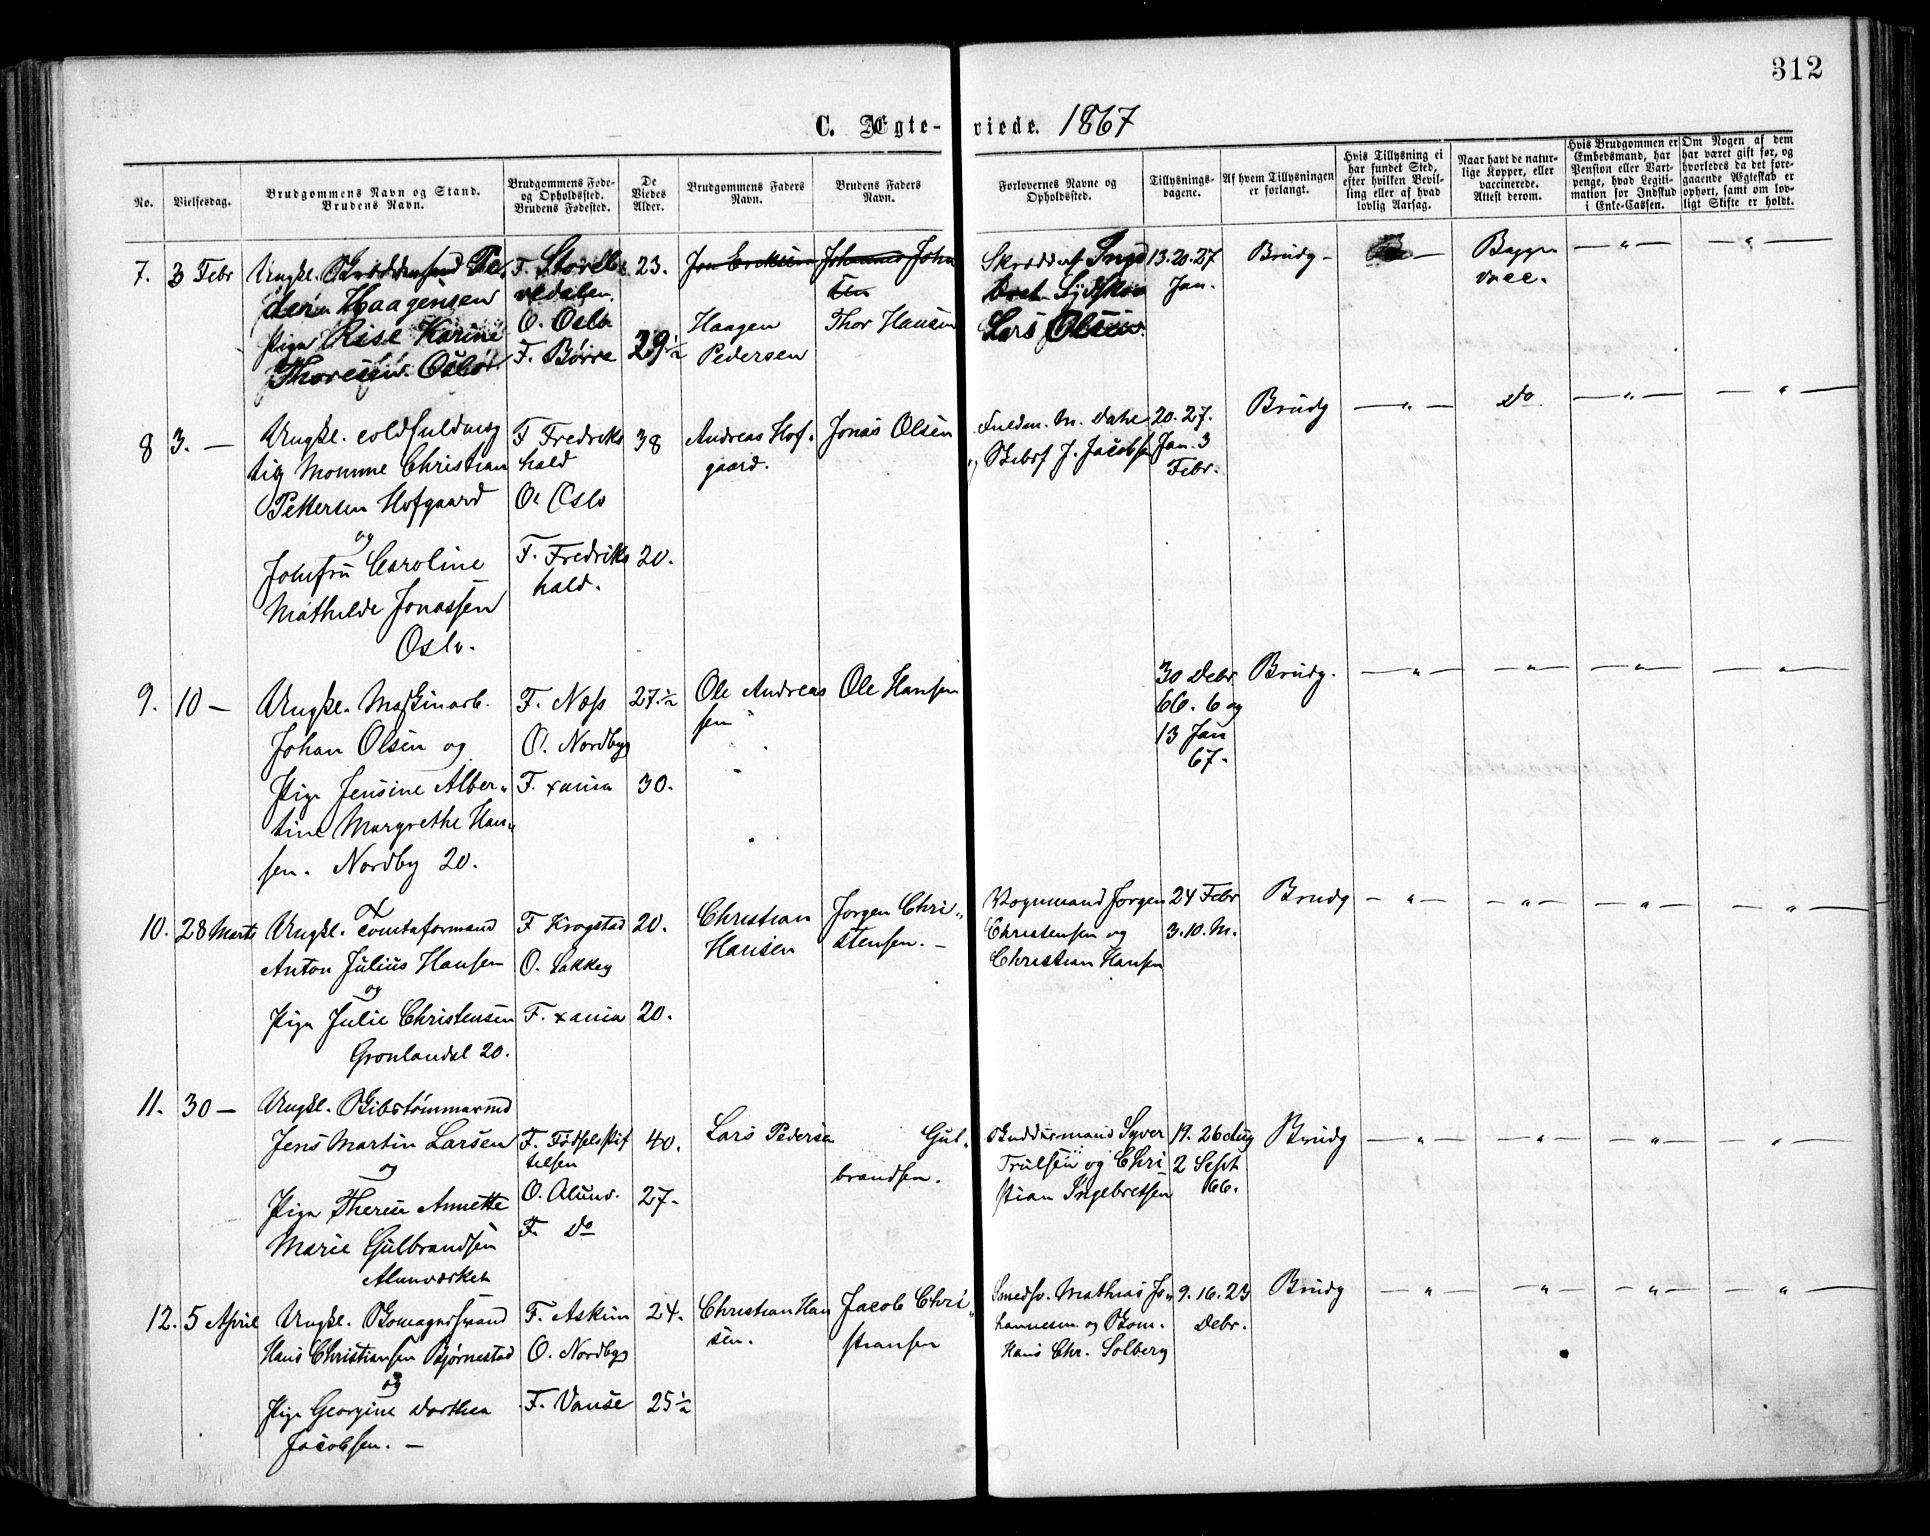 312
C. Ægte-viede. 1867
No.
Vielsesdag.
Brudgommens Navn og Stand.
Brudens Navn.
Brudgommens Føde-
og Opholdssted.
Brudens Fødested.
De
Viedes
Alder.
Brudgommens Faders
Navn.
Brudens Faders
Navn.
Forlovernes Navne og
Opholdssted.
Tillysnings-
dagene.
Af hvem Tillysningen
er forlangt.
Hvis Tillysning ei
har fundet Sted,
efter hvilken Bevil-
ling eller af hvad
lovlig Aarsag.
Naar havt de natur-
lige Kopper, eller
vaccinerede.
Attest derom.
Hvis Brudgommen er
Embedsmand, har
Pension eller Vart-
penge, hvad Legiti-
mation for Indskud
i Enke-Cassen.
Om Nogen af dem
har været gift før, og
hvorledes da det fore-
gaaende Ægteskab er
ophørt, samt om lov-
ligt Skifte er holdt.
7. 3 Febr Ungkl. Pe
dern Haagensen
Pige Rise Karine
Thoresen. Oslo
F. Storel
vedalen.
O. Oslo
F. Børre
23.
29½
Jon Eriksen
Haagen
Pedersen
Johannes John
sen
Thor Hansen
Lars Olsen
13. 20. 27
Jan.
Brudg
Begge
vacc.
8 3. — Ungkl. coldfuldmæg
tig Momme Christian
Pettersen Hofgaard
og
Jomfru Caroline
Mathilde Jonassen
Oslo.
F Fredriks
hald
O. Oslo
F. Fredriks
hald.
38
20.
Andreas Hof-
gaard.
Jonas Olsen
Fuldm. M. Dahe
J. Jacobsen
20. 27.
Jan. 3
Febr.
Brudg — „ — do — „ — — „ —
9. 10 — Ungkl. Maskinarb.
Johan Olsen og
Pige Jensine Alber„
tine Margrethe Han„
sen. Nordby 20.
F. Næss
O. Nordbyg
F. xania
27.½
30.
Ole Andreas
sen
Ole Hansen
30 Debr
66. 6 og
13 Jan
67.
Brudg. — „ — — „ — — „ — — „ —
10. 28 Marts Ungkl. Tomteformand
Anton Julius Hansen
og
Pige Julie Christensen
Grønlandsl 20.
F Krogstad
O. Lakkeg
F. xania
20.
20.
Christian
Hansen
Jørgen Chri„
stensen. —
Vognmand Jørgen
Christensen og
Christian Hansen
24 Febr
3. 10. M.
Brudg — „ — — „ — — „ — — „ —
11. 30 — Ungkl. Skibstømmermd
Jens Martin Larsen
og
Pige Therese Annette
Marie Gulbrandsen
Alunværket
F. Fødselsstif
telsen
O. Alunv.
F. do
40.
27.
Lars Pedersen
Gul-
brandsen.
Syver
Trulsen og Chri
stian Ingebretsen
19. 26 Aug
2 Sept
66.
Brudg — „ — — „ — — „ — — „ —
12. 5 April Ungkl. Skomagersvend
Hans Christiansen Bjørnestad
og
Pige Georgine Dorthea
Jacobsen. —
F. Askim
O. Nordbyg
F. Vanse
24.
25½
Christian Han
sen.
Jacob Chri„
stiansen
Smedsv. Mathias Jo„
hannesen og Skom.
Hans Chr. Solberg
9. 16. 23
Debr.
Brudg — „ — — „ — — „ — — „ —